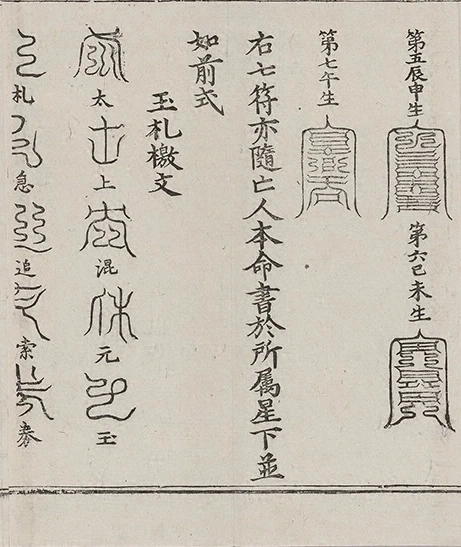 第五辰申生
第六巳未生
第七午生
右七符亦隨亡人本命書於所属星下並
如前式
玉札檄文
太上混元玉
札急追索奏